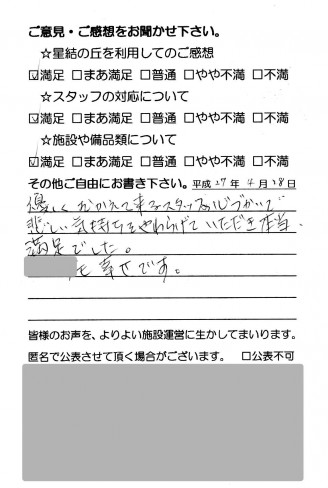 ご意見・ご感想をお聞かせ下さい。
☆星結の丘を利用してのご感想
☑満足 □まあ満足 □普通 □やや不満 □不満
☆スタッフの対応について
☑満足 □まあ満足 □普通 □やや不満 □不満
☆施設や備品類について
☑満足 □まあ満足 □普通 □やや不満 □不満
その他ご自由にお書き下さい。平成27年4月18日
優しくむかえて来るスタッフの心づかいで
悲しい気持ちもやわらげていただき本当、
満足でした。
も幸せです。
皆様のお声を、よりよい施設運営に生かしてまいります。
匿名で公表させて頂く場合がございます。 □公表不可